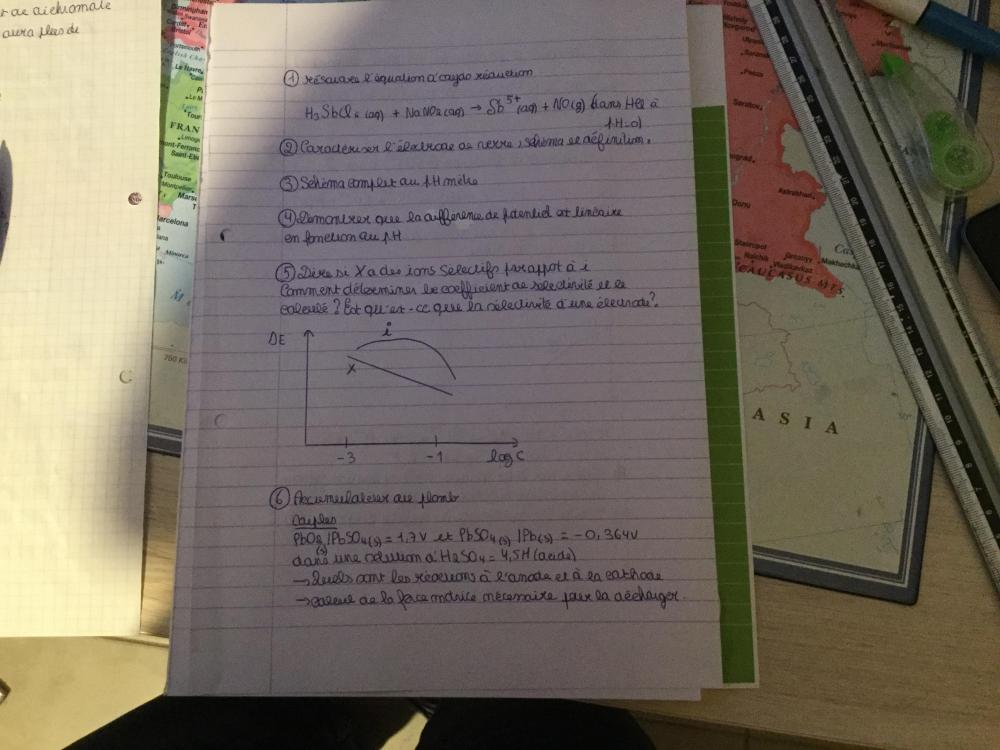 aura plus de
① résoudre l'équation d'oxydo réduction
+ NaNO2(aq) → Sb5+(aq) + NO(g) (dans HCl à
pH=0)
② Caractériser l'électrode de verre, schéma et définition.
③ Schéma complet du pH mètre
④ Demontrer que la différence de potentiel est linéaire
en fonction du pH
⑤ Dire si X a des ions sélectifs par appot à i
Comment déterminer le coefficient de sélectivité et le
calculé ? Est qu'est-ce que la sélectivité d'une électrode ?
ΔE
i
X
-3
-1
log C
⑥ Accumulateur au plomb
couples
PbO2(s) |PbSO4(s) = 1,7V et PbSO4(s) |Pb(s) = -0,364V
dans une solution d'H2SO4 = 4,5M (acide)
→ Quels sont les réactions à l'anode et à la cathode
→ calcul de la force motrice nécessaire pour la décharger.
Birmingham
Cardiff
Bristol
Portsmouth
FRAN
Limog
Toulouse
Montpellier
Mars
Barcelona
Minorca
M
Saratov
Astrakhan
Stavropol
Nalchik
Grozny
Vladikavkaz
Makhachkala
CAUCASUS MTS.
Cas
ASIA